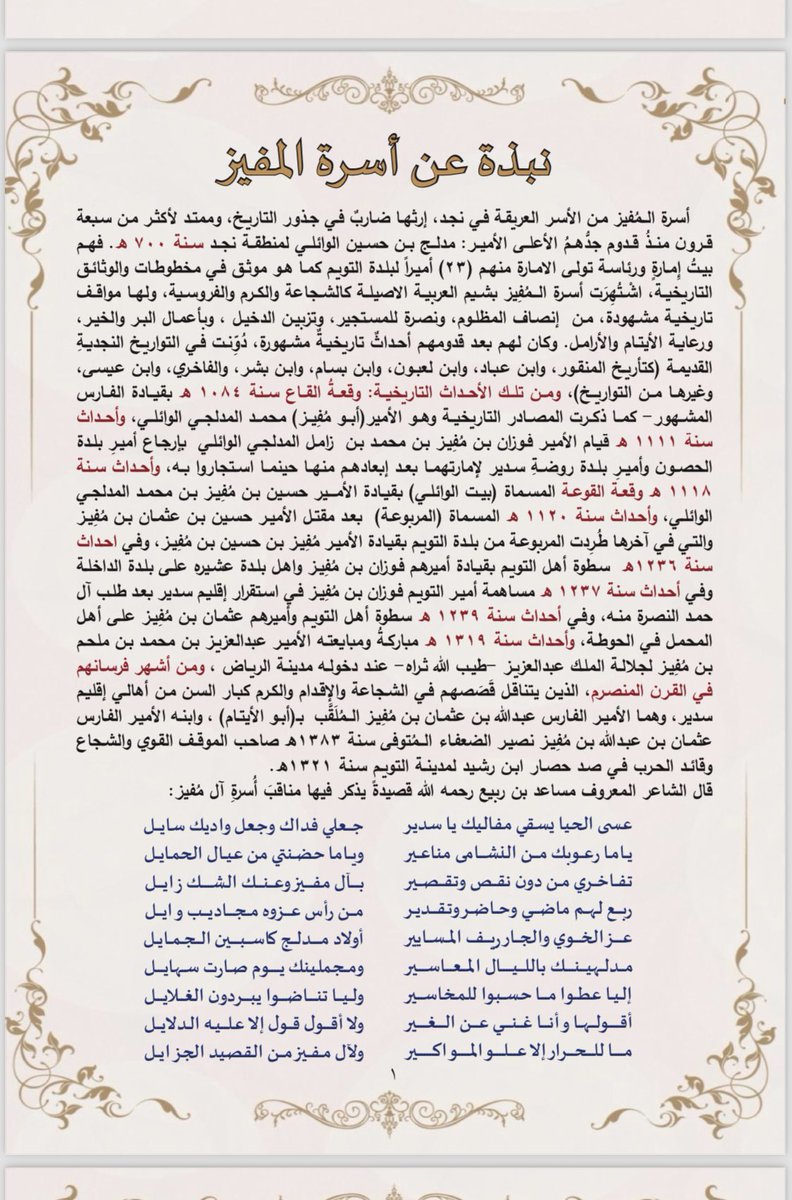 نبذة عن أسرة المفيز
أسرة الـمُفيز من الأسر العريقة في نجد، إرثها ضاربٌ في جذور التاريخ، وممتد لأكثر من سبعة
قرون منذُ قدوم جدُّهمُ الأعلى الأمير: مدلج بن حسين الوائلي لمنطقة نجد سنة ٧٠٠ هـ. فهم
بيتُ إمارةٍ ورئاسة تولى الامارة منهم (٢٣) أميراً لبلدة التويم كما هو موثق في مخطوطات والوثائق
التاريخية، اشْتُهِرَت أسرة الـمُفِيز بشيم العربية الاصيلة كالشجاعة والكرم والفروسية، ولها مواقف
تاريخية مشهودة، من إنصاف المظلوم، ونصرة للمستجير، وتزبين الدخيل ، وبأعمال البر والخير،
ورعاية الأيتام والأرامل. وكان لهم بعد قدومهم أحداثٌ تاريخيةٌ مشهورة، دُوّنت في التواريخ النجديةِ
القديمة (كتأريخ المنقور، وابن عباد، وابن لعبون، وابن بسام، وابن بشر، والفاخري، وابن عيسى،
وغيرها من التواريخ)، ومن تلك الأحداث التاريخية: وقعةُ القاع سنة ١٠٨٤ هـ بقيادة الفارس
المشهور- كما ذكرت المصادر التاريخية وهو الأمير(أبو مُفِيز) محمد المدلجي الوائلي، وأحداث
سنة ١١١١ هـ قيام الأمير فوزان بن مُفِيز بن محمد بن زامل المدلجي الوائلي بإرجاع أميرِ بلدة
الحصون وأميرِ بلدة روضةِ سدير لإمارتهما بعد إبعادهم منها حينما استجاروا به، وأحداث سنة
١١١٨ هـ وقعة القوعة المسماة (بيت الوائلي) بقيادة الأمير حسين بن مُفِيز بن محمد المدلجي
الوائلي، وأحداث سنة ١١٢٠ هـ المسماة (المربوعة) بعد مقتل الأمير حسين بن عثمان بن مُفِيز
والتي في آخرها طُرِدت المربوعة من بلدة التويم بقيادة الأمير مُفِيز بن حسين بن مُفيز ، وفي احداث
سنة ١٢٣٦هـ سطوة أهل التويم بقيادة أميرهم فوزان بن مُفِيز واهل بلدة عشيره على بلدة الداخلة
وفي أحداث سنة ١٢٣٧ هـ مساهمة أمير التويم فوزان بن مُفِيز في استقرار إقليم سدير بعد طلب آل
حمد النصرة منه، وفي أحداث سنة ١٢٣٩ هـ سطوة أهل التويم وأميرهم عثمان بن مُفيز على أهل
المحمل في الحوطة، وأحداث سنة ١٣١٩ هـ مباركةُ ومبايعته الأمير عبدالعزيز بن محمد بن ملحم
بن مُفِيز لجلالة الملك عبدالعزيز -طيب الله ثراه- عند دخوله مدينة الرياض ، ومن أشهر فرسانهم
في القرن المنصرم، الذين يتناقل قَصَصهم في الشجاعة والإقدام والكرم كبار السن من أهالي إقليم
سدير، وهما الأمير الفارس عبدالله بن عثمان بن مُفِيز الـمُلَقَّب بـ(أبو الأيتام) ، وابنه الأمير الفارس
عثمان بن عبدالله بن مُفِيز نصير الضعفاء الـمُتوفى سنة ١٣٨٣هـ صاحب الموقف القوي والشجاع
وقائد الحرب في صد حصار ابن رشيد لمدينة التويم سنة ١٣٢١هـ.
قال الشاعر المعروف مساعد بن ربيع رحمه الله قصيدةً يذكر فيها مناقبَ أُسرةِ آل مُفيز:
عسى الحيا يسقي مفاليك يا سدير جعلي فداك وجعل واديك سايل
ياما رعوبك من النشامى مناعير وياما حضنتي من عيال الحمايل
تفاخري من دون نقص وتقصير بآل مفيز وعنك الشك زايل
ربع لهم ماضي وحاضر وتقدير من رأس عزوه مجاديب وايل
عز الخوي والجار ريف المسايير أولاد مدلج كاسبين الجمايل
مدلهينك بالليال المعاسير ومجملينك يوم صارت سهايل
إليا عطوا ما حسبوا للمخاسير وليا تناضوا يبردون الغلايل
أقولها وأنا غني عن الغير ولا أقول قول إلا عليه الدلايل
ما للحرار إلا علو المواكير ولآل مفيز من القصيد الجزايل
١